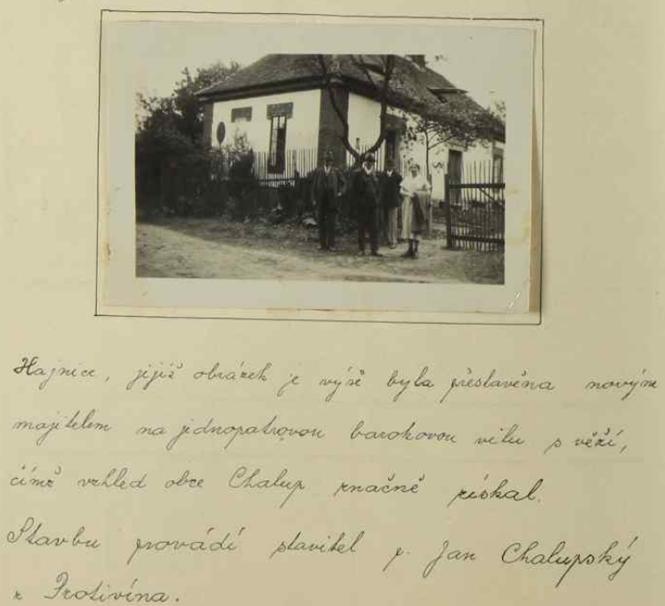 Hajnice, jejíž obrázek je výše byla přestavěna novým
majitelem na jednopatrovou barokovou vilu s věží,
čímž vzhled obce Chalup značně získal.
Stavbu provádí stavitel p. Jan Chalupský
z Protivína.